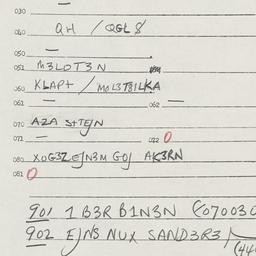 030 —
040 QH / QGL8
050 —
051 M3LOT3N
060 KLAPT / MOL3T8ILKA
061 — 062 —
070 AZA STTEJN
071 — 072 0
080 XOG3Z EJN3M GOJ AK3RN
081 0
901 1 B3R B1N3N (070030
902 EJNS NUX SAND3R3)
(44